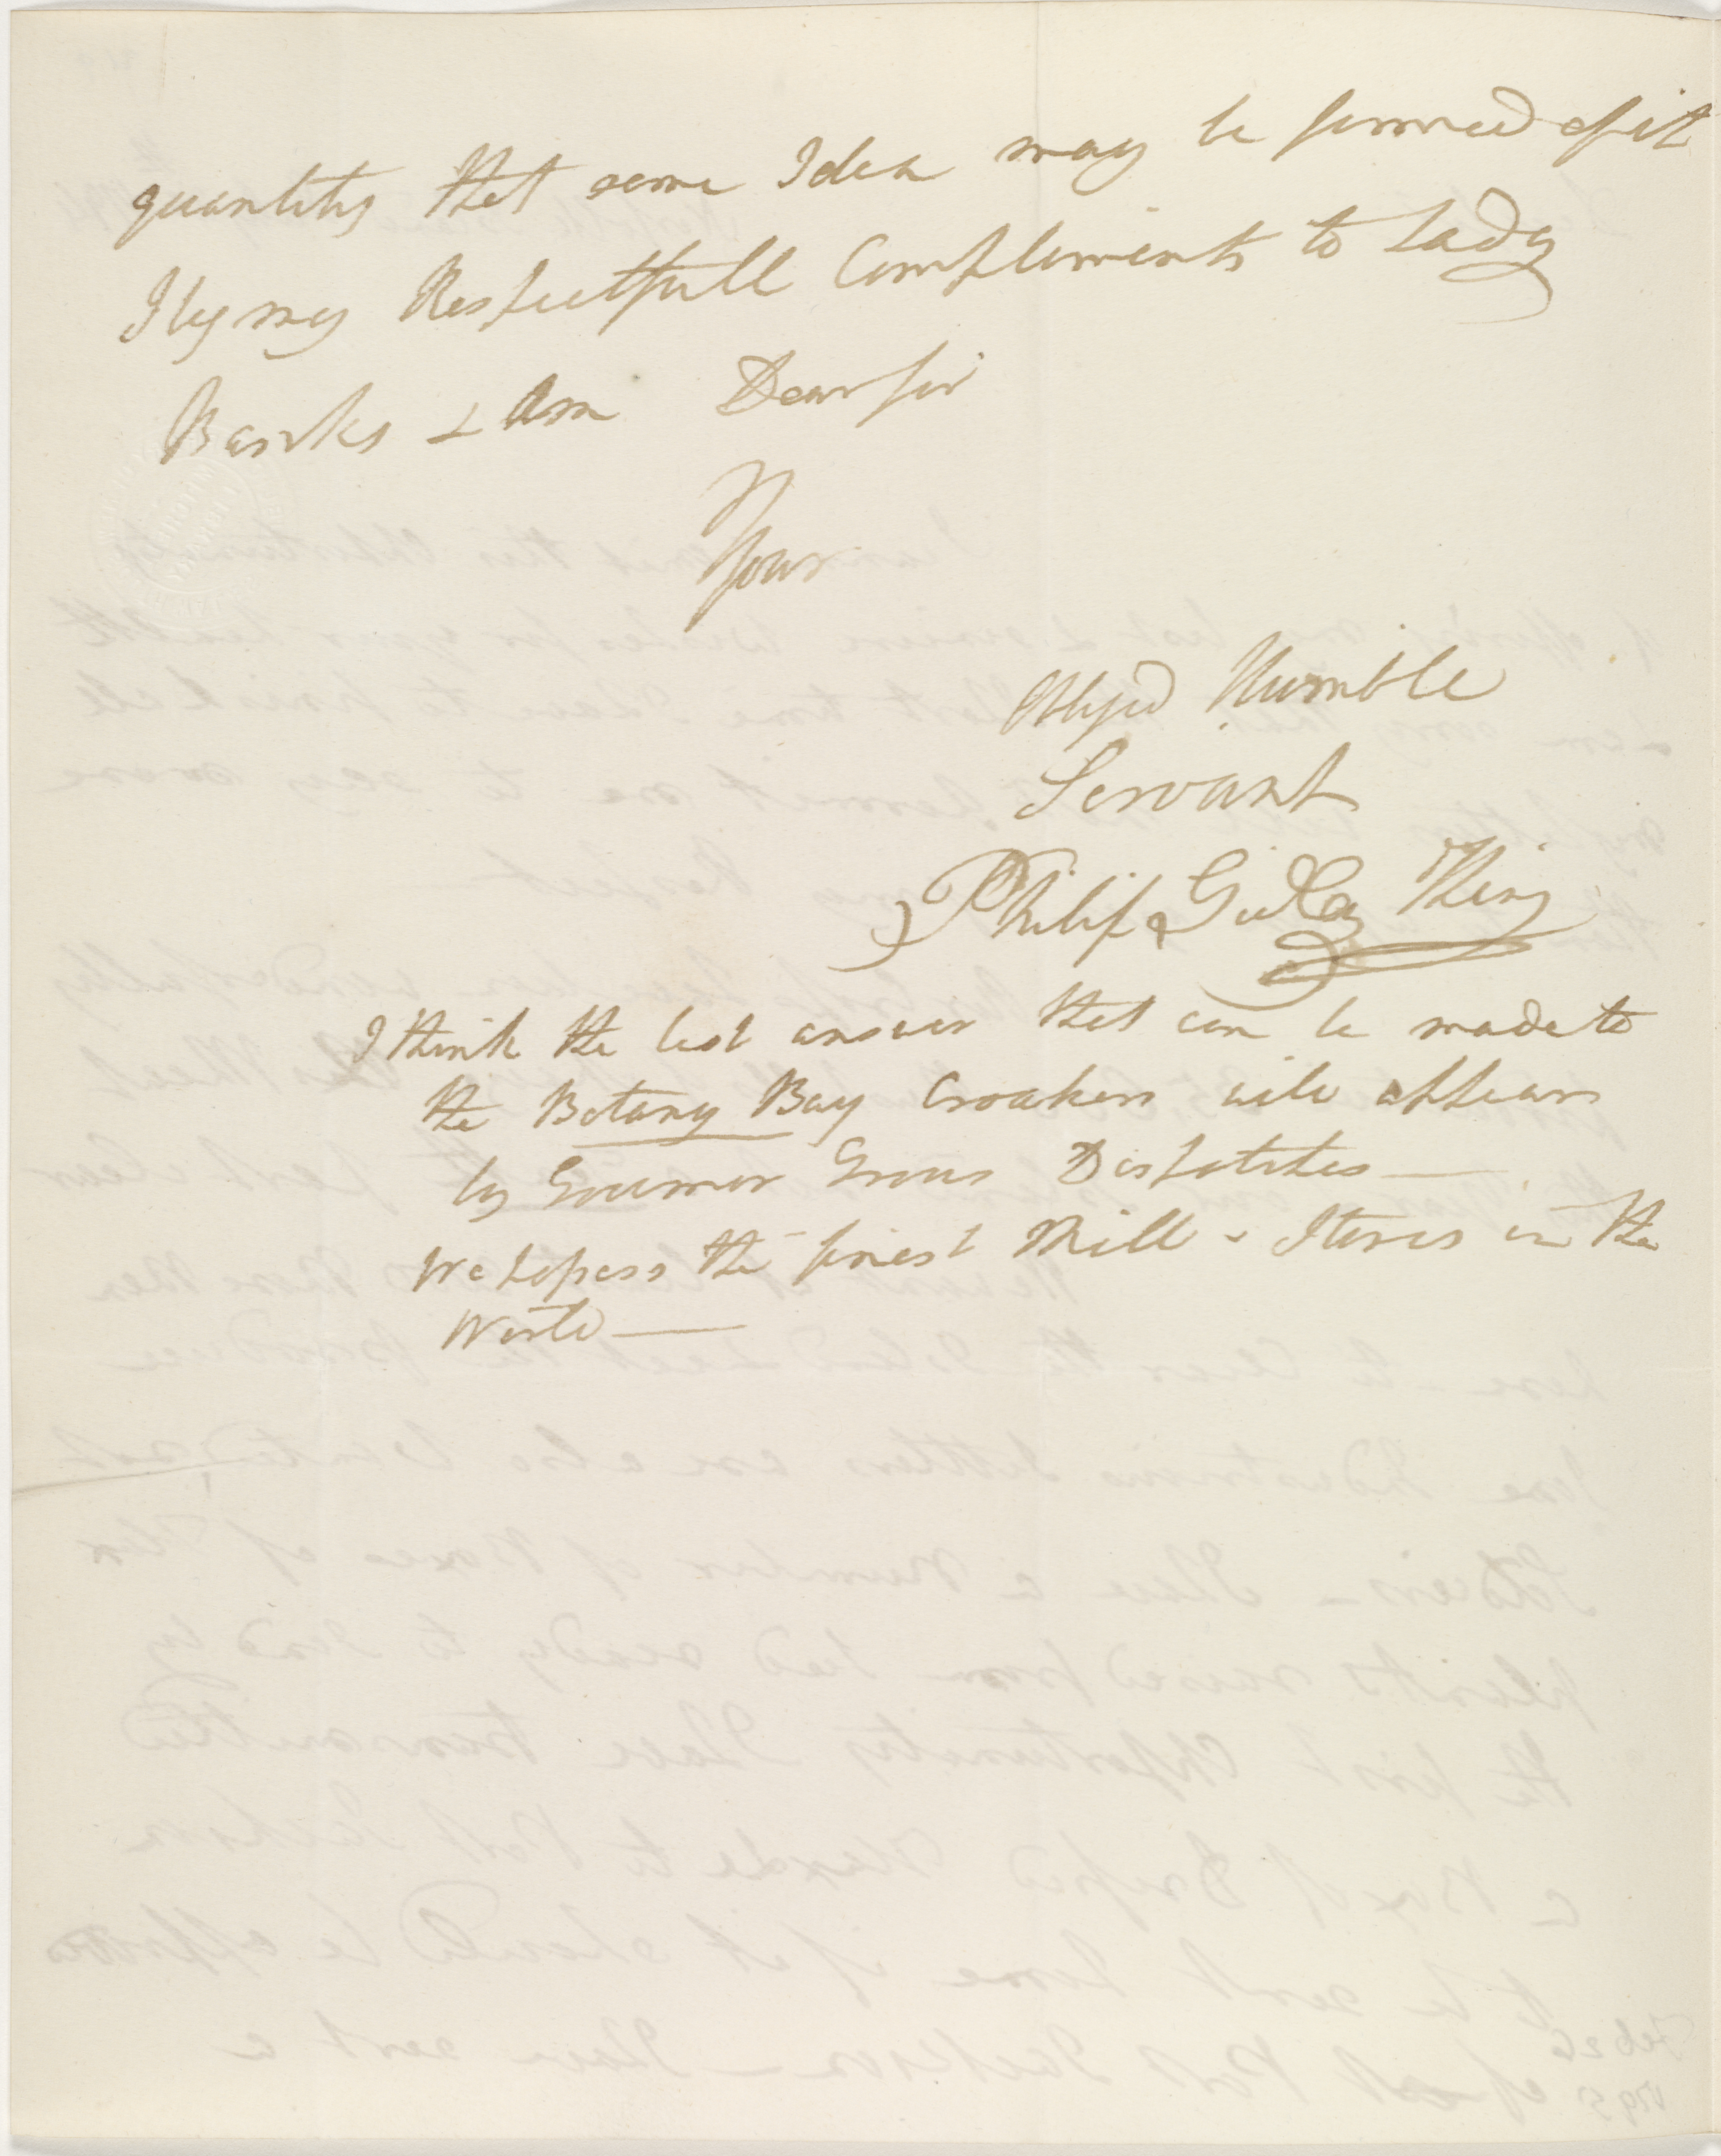 quantity that some Idea may be formed of it
I beg my Respectfull Compliments to Lady
Banks & Am Dear Sir
Your
Oblig'd Humble
Servant
Philip Gidley King
I think the best answer that can be made to
the Botany Bay Croakers will appear
by Governor Groses Dispatches —
We possess the finest Mill & Stores in the
World —